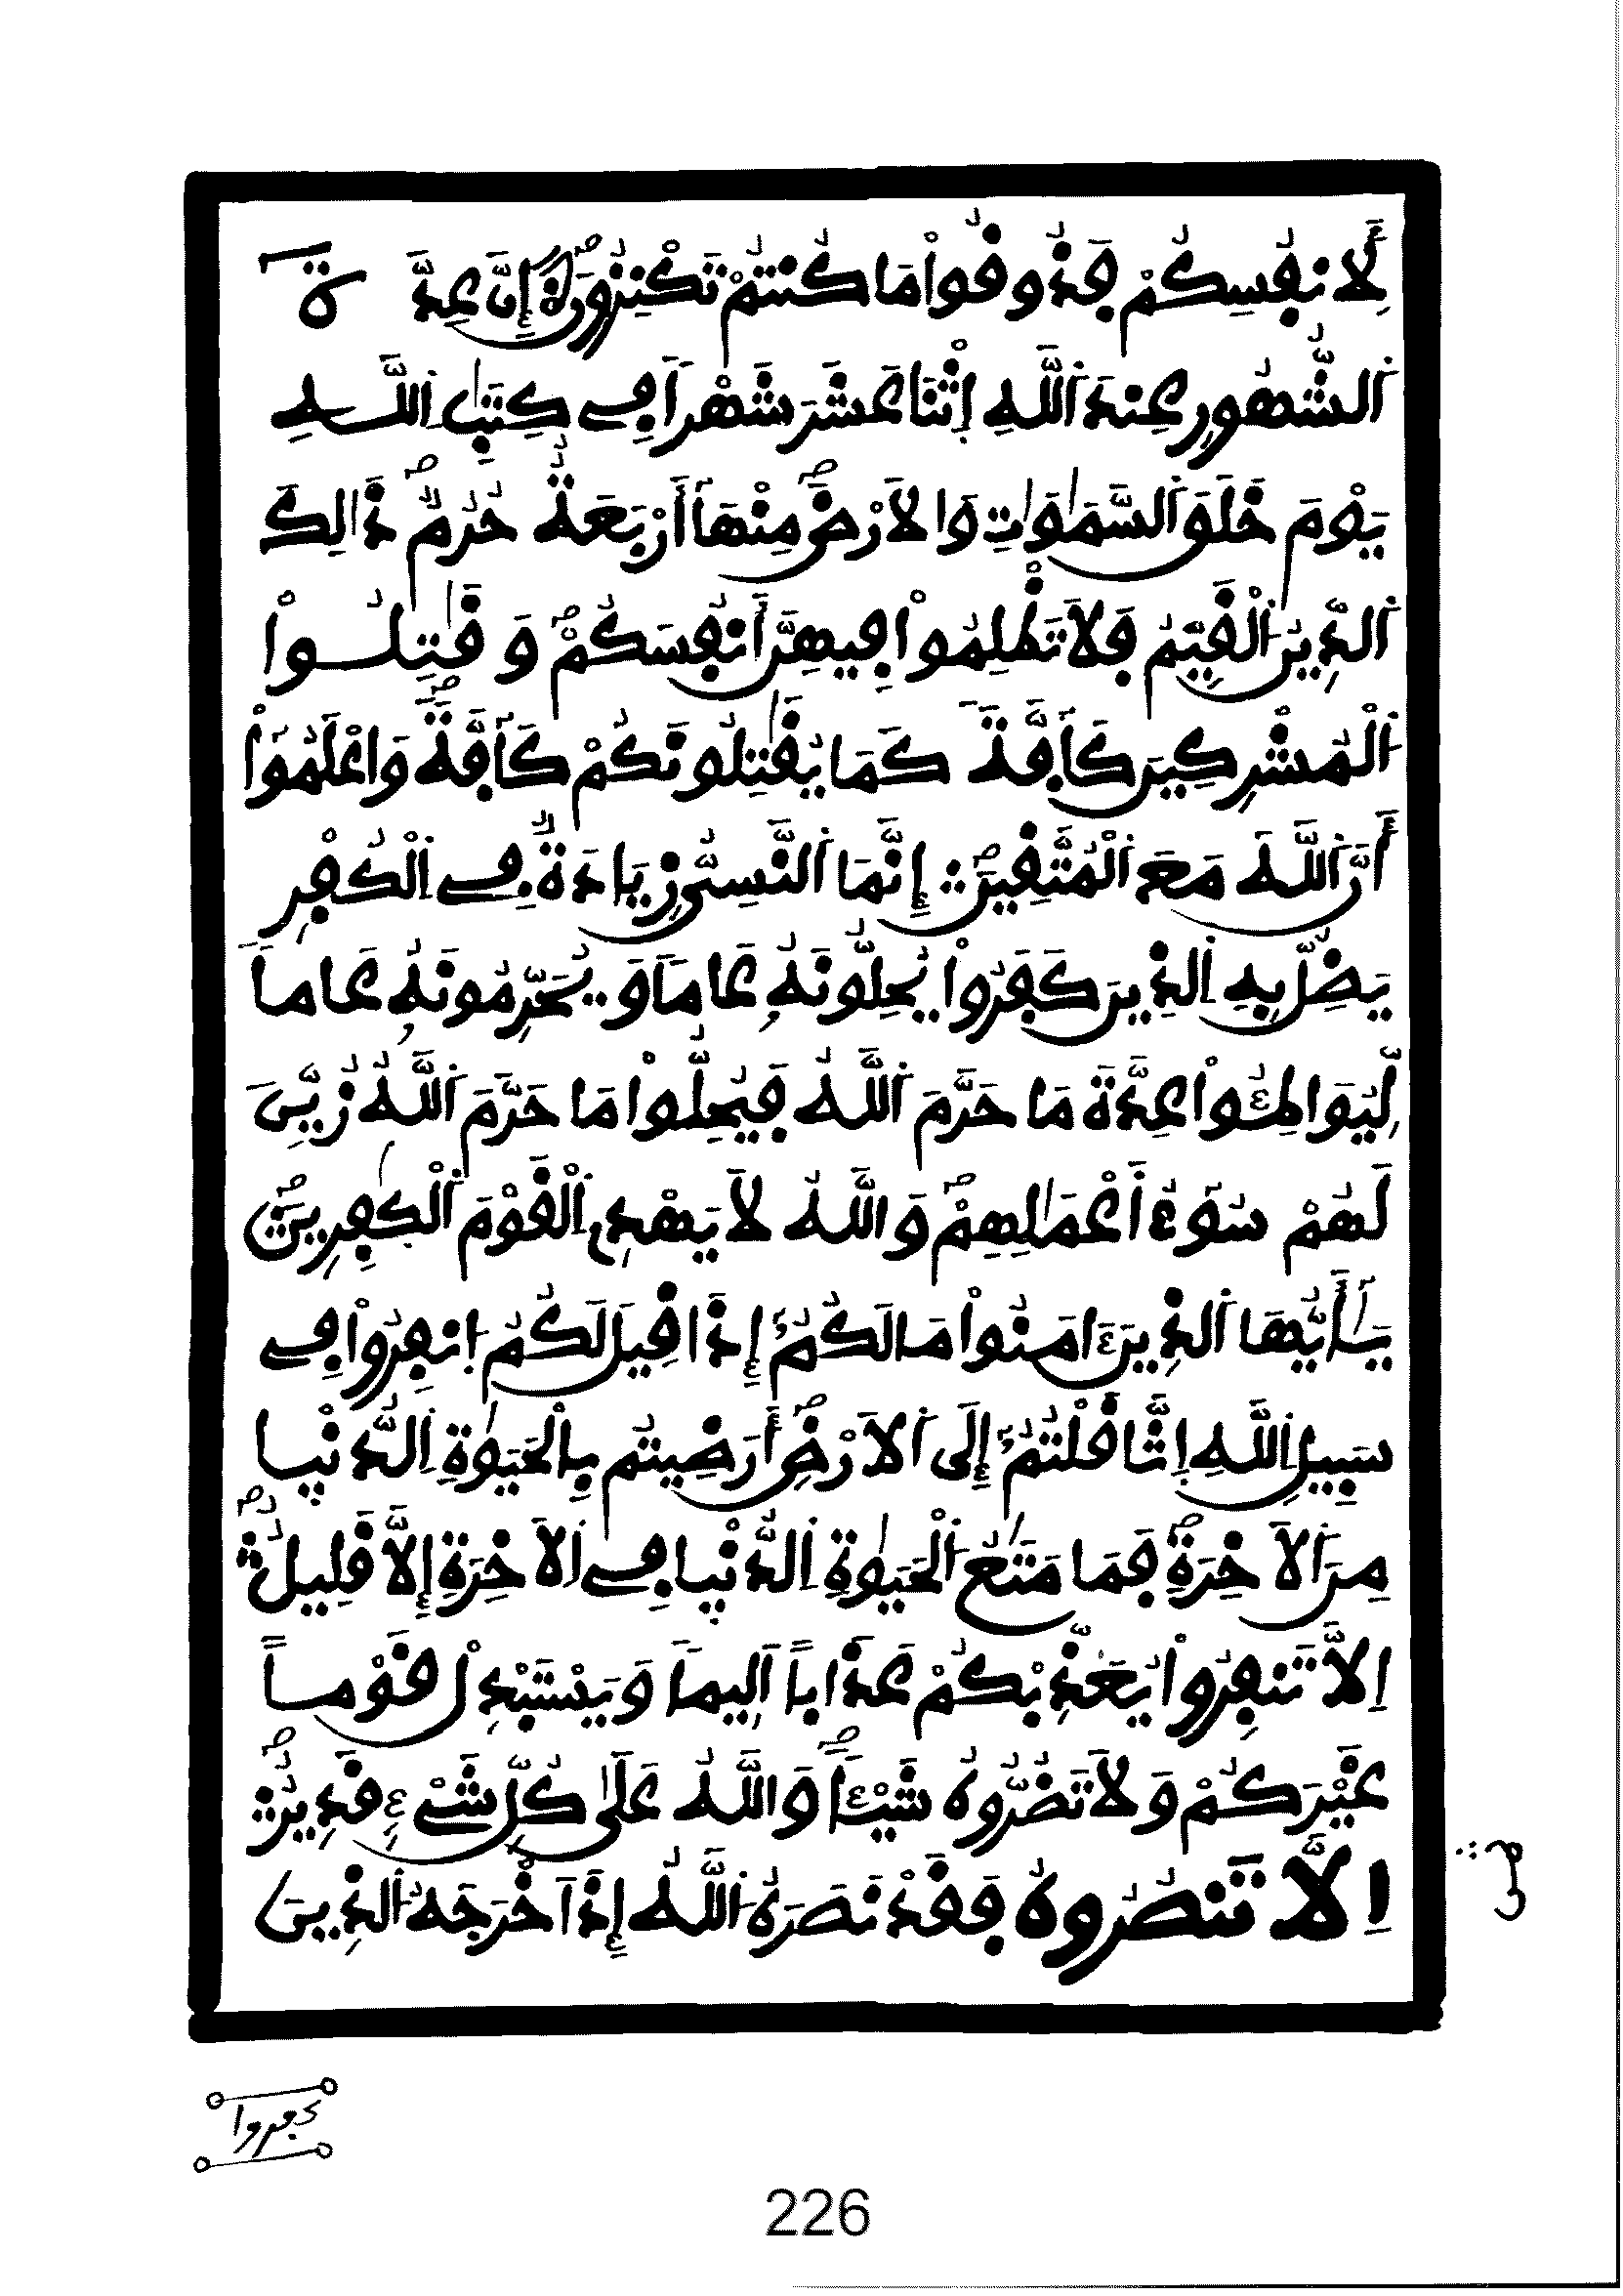 لِأَنفُسِكُمْ فَذُوقُواْ مَا كُنتُمْ تَكْنِزُونَ إِنَّ عِدَّةَ
اَ۬لشُّهُورِ عِندَ اَ۬للَّهِ اِ۪ثْنَا عَشَرَ شَهْراٗ فِے كِتَٰبِ اِ۬للَّهِ
يَوْمَ خَلَقَ اَ۬لسَّمَٰوَٰتِ وَالَارْضَ مِنْهَآ أَرْبَعَةٌ حُرُمٞ ذَٰلِكَ
اَ۬لدِّينُ اُ۬لْقَيِّمُ فَلَا تَظْلِمُواْ فِيهِنَّ أَنفُسَكُمْ وَقَٰتِلُواْ
اُ۬لْمُشْرِكِينَ كَآفَّةٗ كَمَا يُقَٰتِلُونَكُمْ كَآفَّةٗ وَاعْلَمُوٓاْ
أَنَّ اَ۬للَّهَ مَعَ اَ۬لْمُتَّقِينَ إِنَّمَا اَ۬لنَّسِيُّ زِيَادَةٞ فِے اِ۬لْكُفْرِ
يَضِلُّ بِهِ اِ۬لذِينَ كَفَرُواْ يُحِلُّونَهُۥ عَاماٗ وَيُحَرِّمُونَهُۥ عَاماٗ
لِّيُوَاطِـُٔواْ عِدَّةَ مَا حَرَّمَ اَ۬للَّهُ فَيُحِلُّواْ مَا حَرَّمَ اَ۬للَّهُ زُيِّنَ
لَهُمْ سُوٓءُ أَعْمَٰلِهِمْ وَاللَّهُ لَا يَهْدِے اِ۬لْقَوْمَ اَ۬لْكٰفِرِينَ
يَٰٓأَيُّهَا اَ۬لذِينَ ءَامَنُواْ مَا لَكُمُۥٓ إِذَا قِيلَ لَكُمُ اُ۪نفِرُواْ فِے
سَبِيلِ اِ۬للَّهِ اِ۪ثَّاقَلْتُمُۥٓ إِلَى اَ۬لَارْضِ أَرَضِيتُم بِالْحَيَوٰةِ اِ۬لدُّنْيا
مِنَ اَ۬لَاخِرَةِ فَمَا مَتَٰعُ اُ۬لْحَيَوٰةِ اِ۬لدُّنْيا فِے اِ۬لَاخِرَةِ إِلَّا قَلِيلٌ
اِلَّا تَنفِرُواْ يُعَذِّبْكُمْ عَذَاباً اَلِيماٗ وَيَسْتَبْدِلْ قَوْماً
غَيْرَكُمْ وَلَا تَضُرُّوهُ شَيْـٔاٗ وَاللَّهُ عَلَىٰ كُلِّ شَےْءٖ قَدِيرٌ
اِلَّا تَنصُرُوهُ فَقَدْ نَصَرَهُ اُ۬للَّهُ إِذَ اَخْرَجَهُ اُ۬لذِينَ
كفروا
226